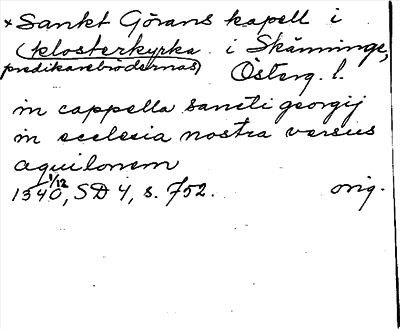 × Sankt Görans kapell i
(klosterkyrka i Skänninge,
predikarebrödernas) Österg. l.
in cappella sancti georgij
in ecclesia nostra versus
aquilonem
1340 1/12, SD 4, s. 752. orig.